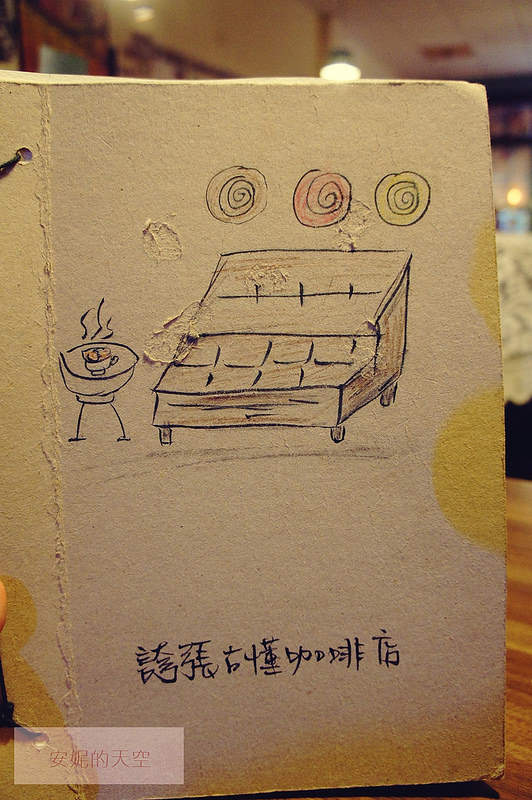 誇張古懂咖啡店
安妮的天空